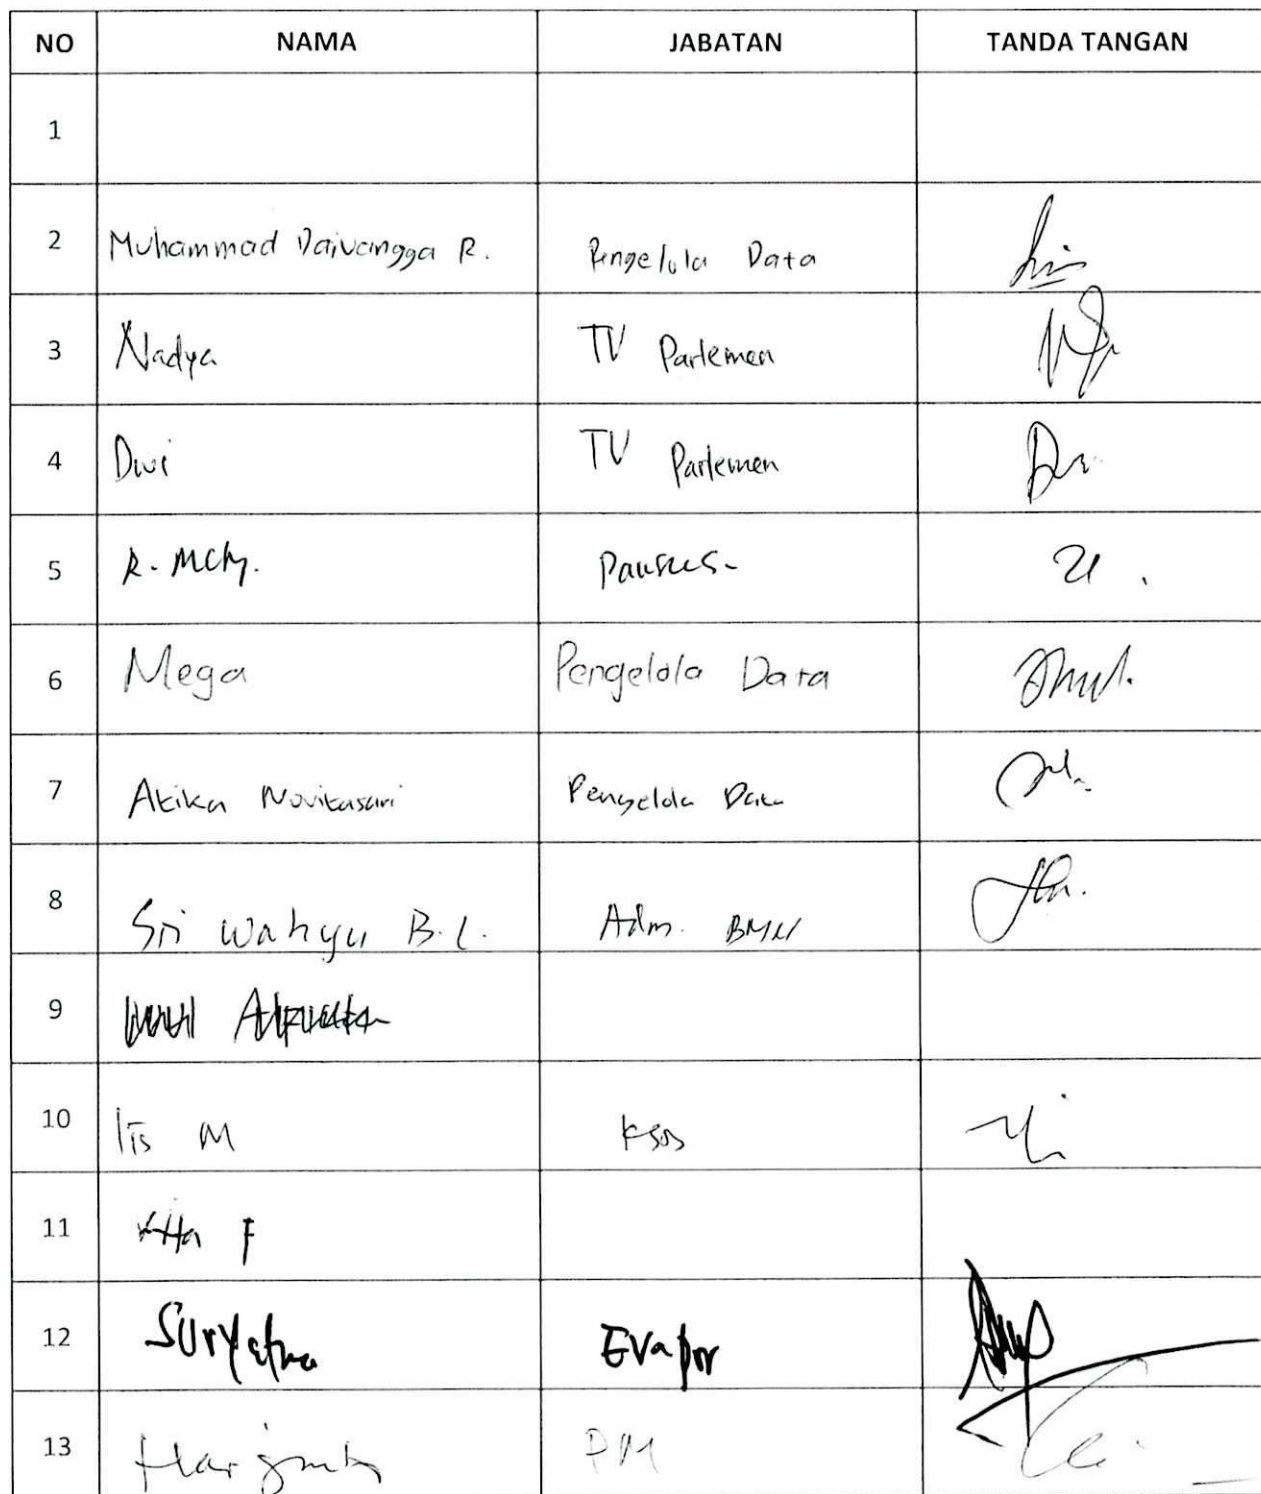 NO NAMA JABATAN TANDA TANGAN
1
2 Muhammad Daivangga R. Pengelola Data
3 Nadya TV Parlemen
4 Dwi TV Parlemen
5 R. Pansus-
6 Mega Pengelola Data
7 Atika Novitasari Pengelola Data
8 Sri Wahyu B.L. Adm. BMN
9
10 Iis M
11 F
12 Suryatna Evapor
13 PM